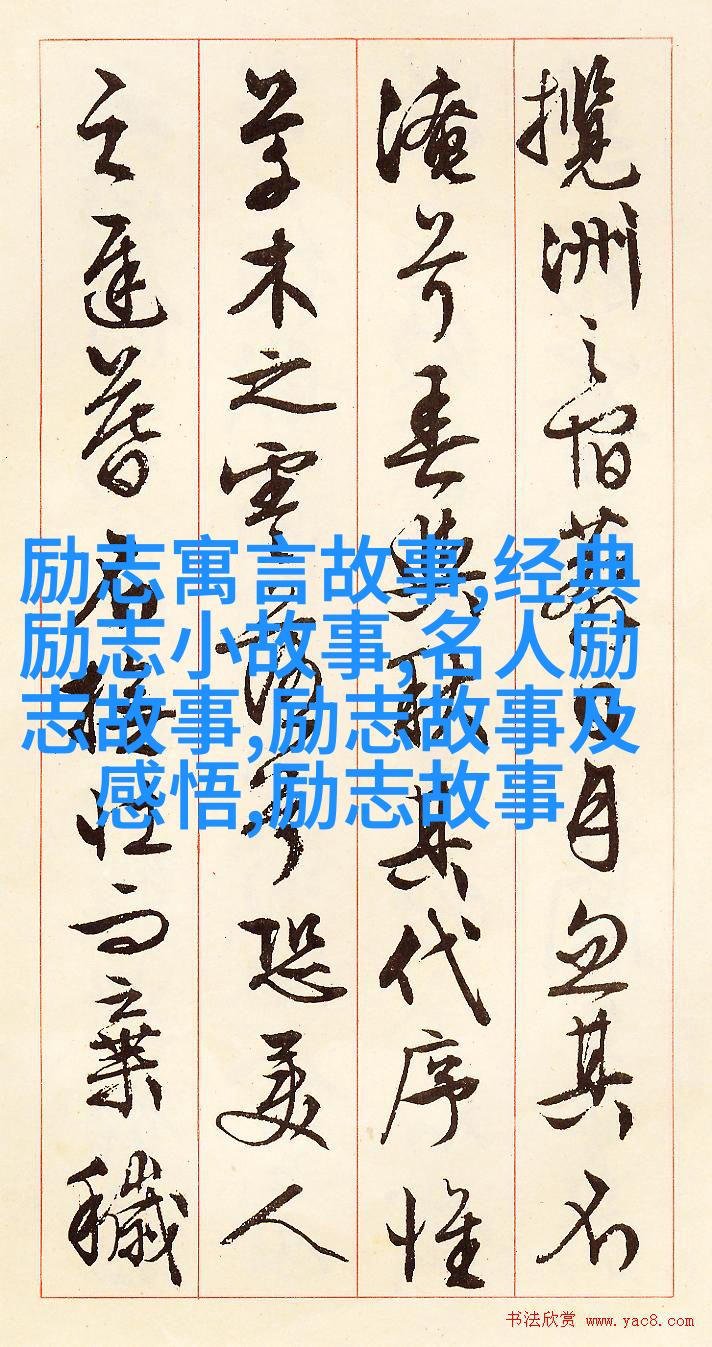 攬洲之宿莽日月忽其不
淹兮春與秋其代序惟
草木之零落兮恐美人
之遲暮不撫壯而棄穢
励志寓言故事,经典
励志小故事,名人励
志故事,励志故事及
感悟,励志故事
书法欣赏 www.yac8.com